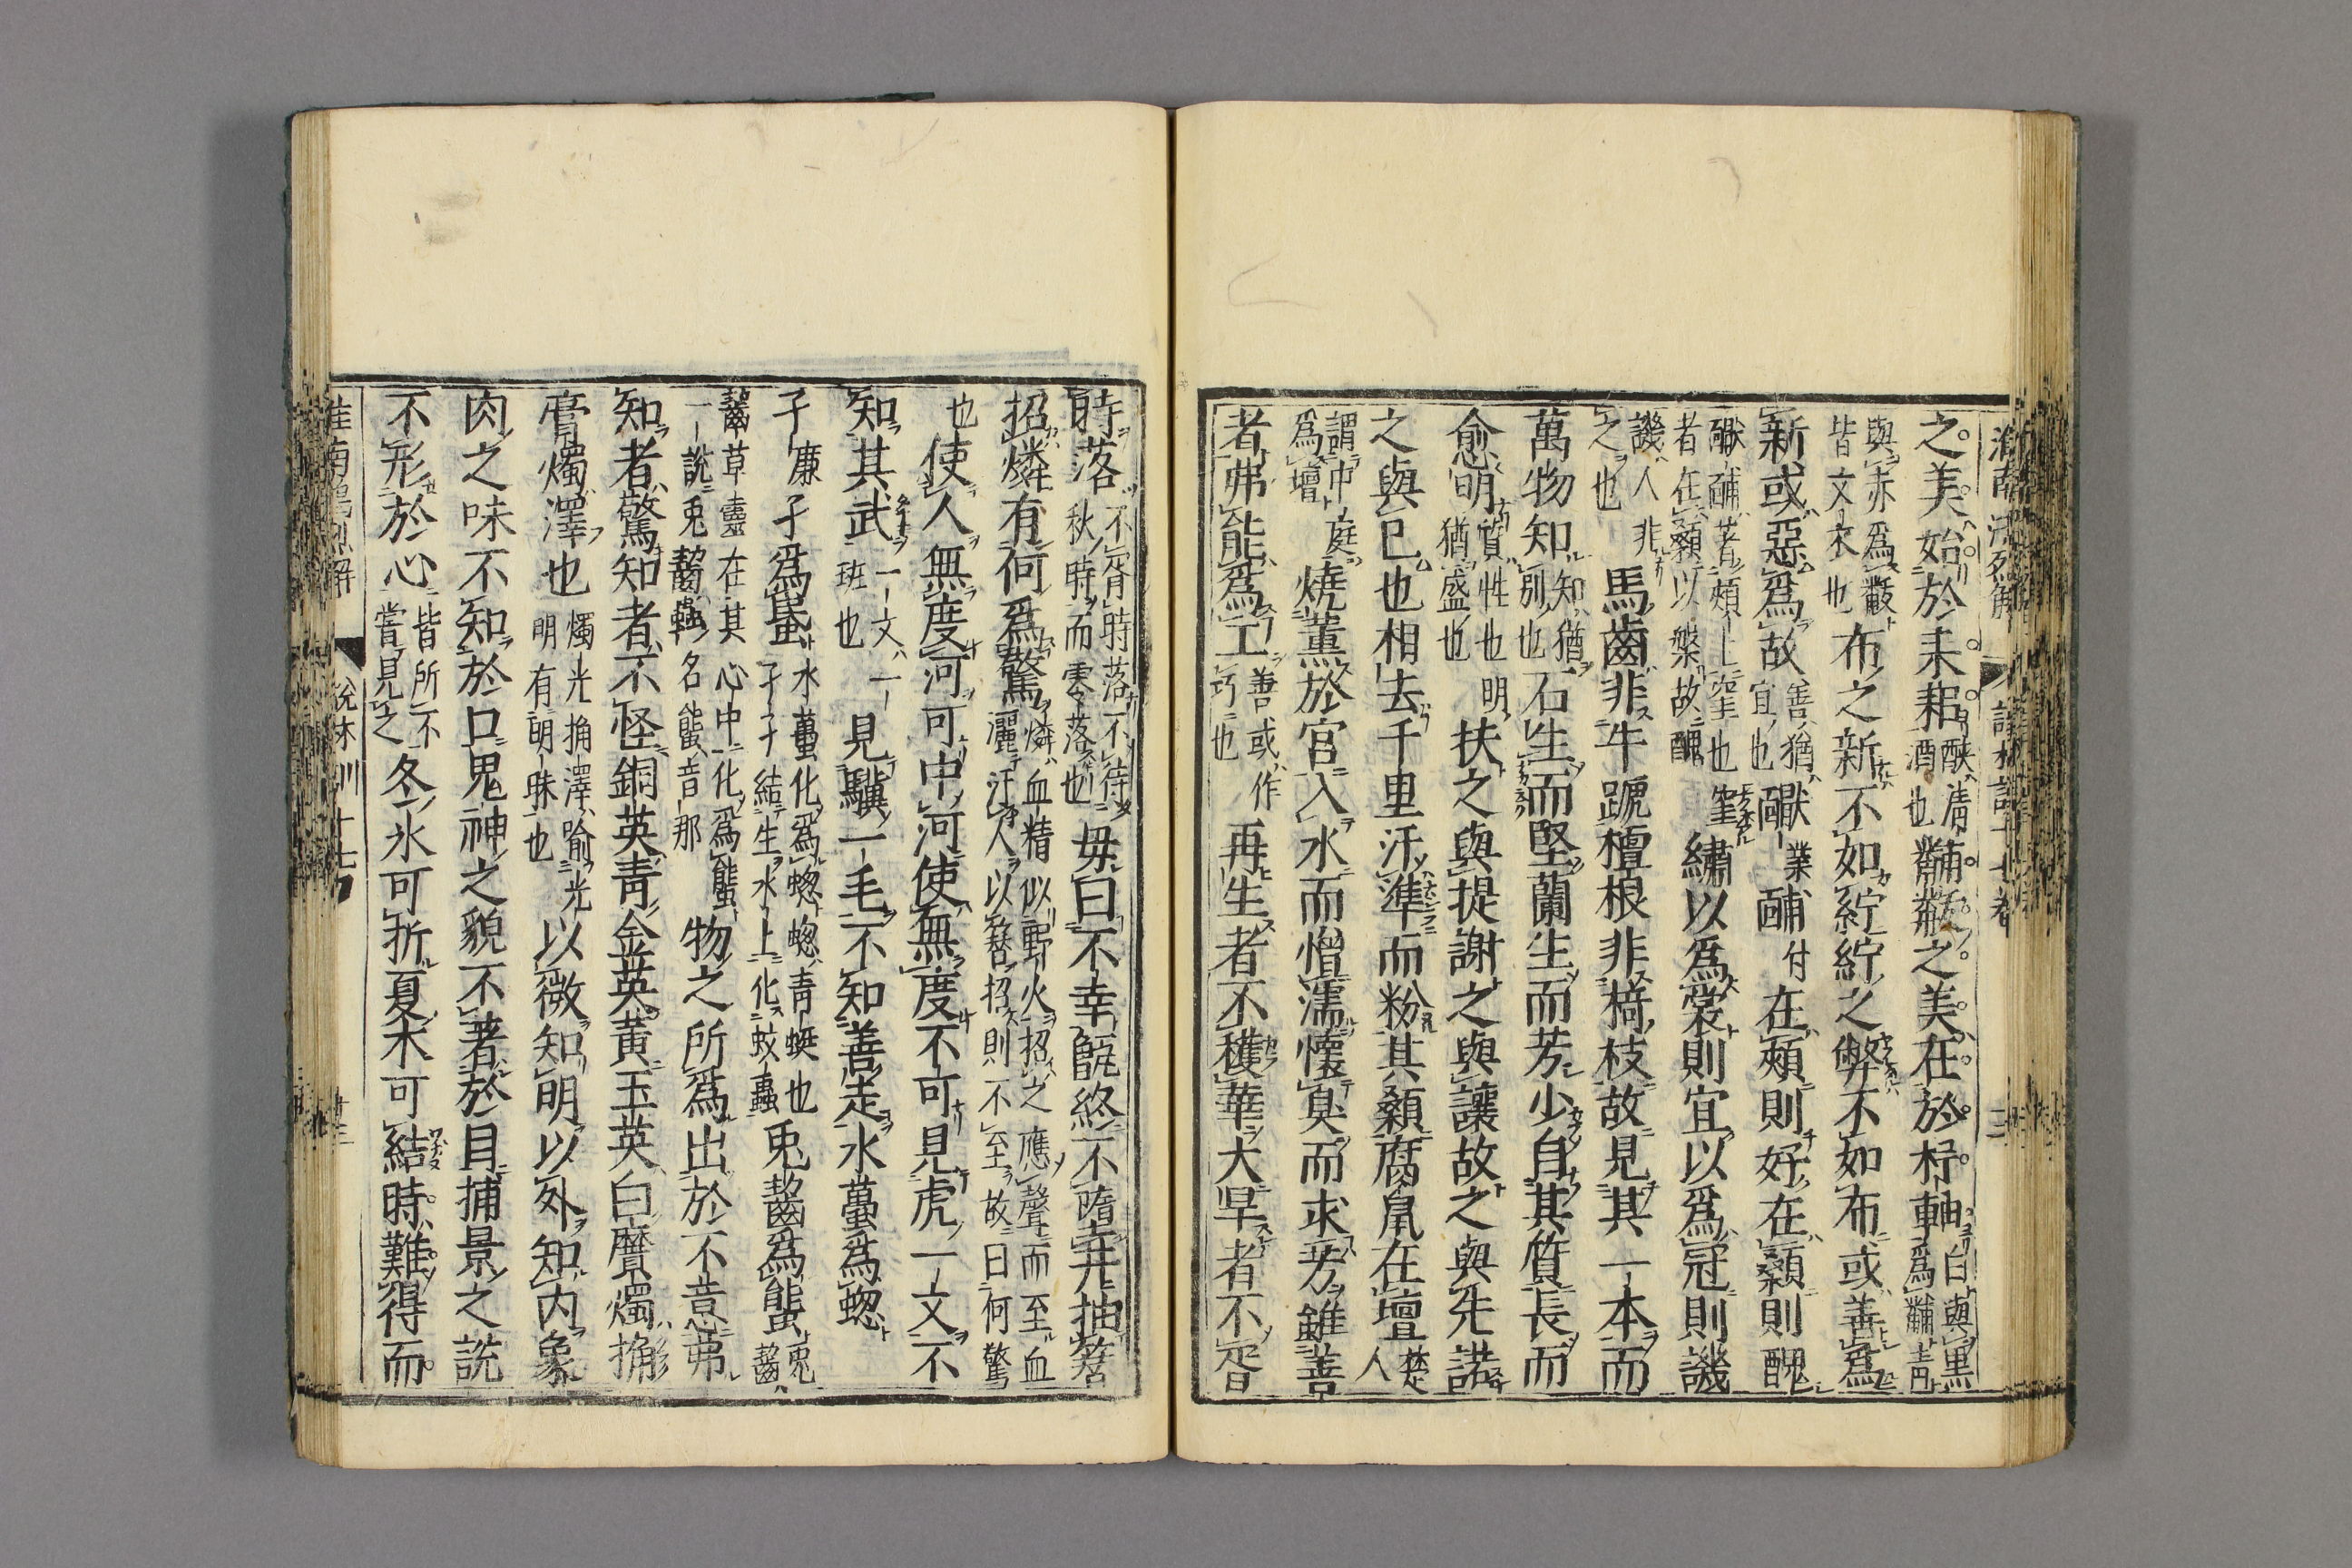 之美始於耒耜白與黑爲黼靑
與赤爲黻皆文衣也布之新不如紵紵之弊不如布或善爲
新或惡爲故善猶宜也𪉗䩉在頰則好在顙則醜
𪉗䩉著頰上窐也窐者在顙以槃故醜繡以爲裳則宜以爲冠則譏
譏人非之也馬齒非牛蹏檀根非椅枝故見其一本而
萬物知知猶別也石生而堅蘭生而芳少自其質長而
愈明質性也明猶盛也扶之與提謝之與讓故之與先諾
之與已也相去千里汙準而粉其顙腐鼠在壇楚人
謂中庭爲壇燒薰於宮入水而憎濡懷臭而求芳雖善
者弗能爲工善或作巧也再生者不穫華大旱者不胥
時落不胥時落不待秋時而零落也毋曰不幸甑終不墮井抽簪
招燐有何爲驚燐血精似野火招之應聲而至血灑汙人以簪招則不至故曰何驚
也使人無度河可中河使無度不可見虎一文不
知其武一文一班也見驥一毛不知善走水蠆爲蟌
孑孑爲蟁水蠆化爲蟌蟌青蜓也孑孑結生水上化蚊蟲兎齧爲䘅兎齧
齧草靈在其心中化爲䘅一說兎齧蟲名䘅音那物之所爲出於不意弗
知者驚知者不怪銅英靑金英黃玉英白黂燭捔
膏燭澤也燭光捔澤喻光明有明昧也以微知明以外知內象
肉之味不知於口鬼神之貌不著於目捕景之說
不形於心皆所不嘗見之冬冰可折夏木可結時難得而